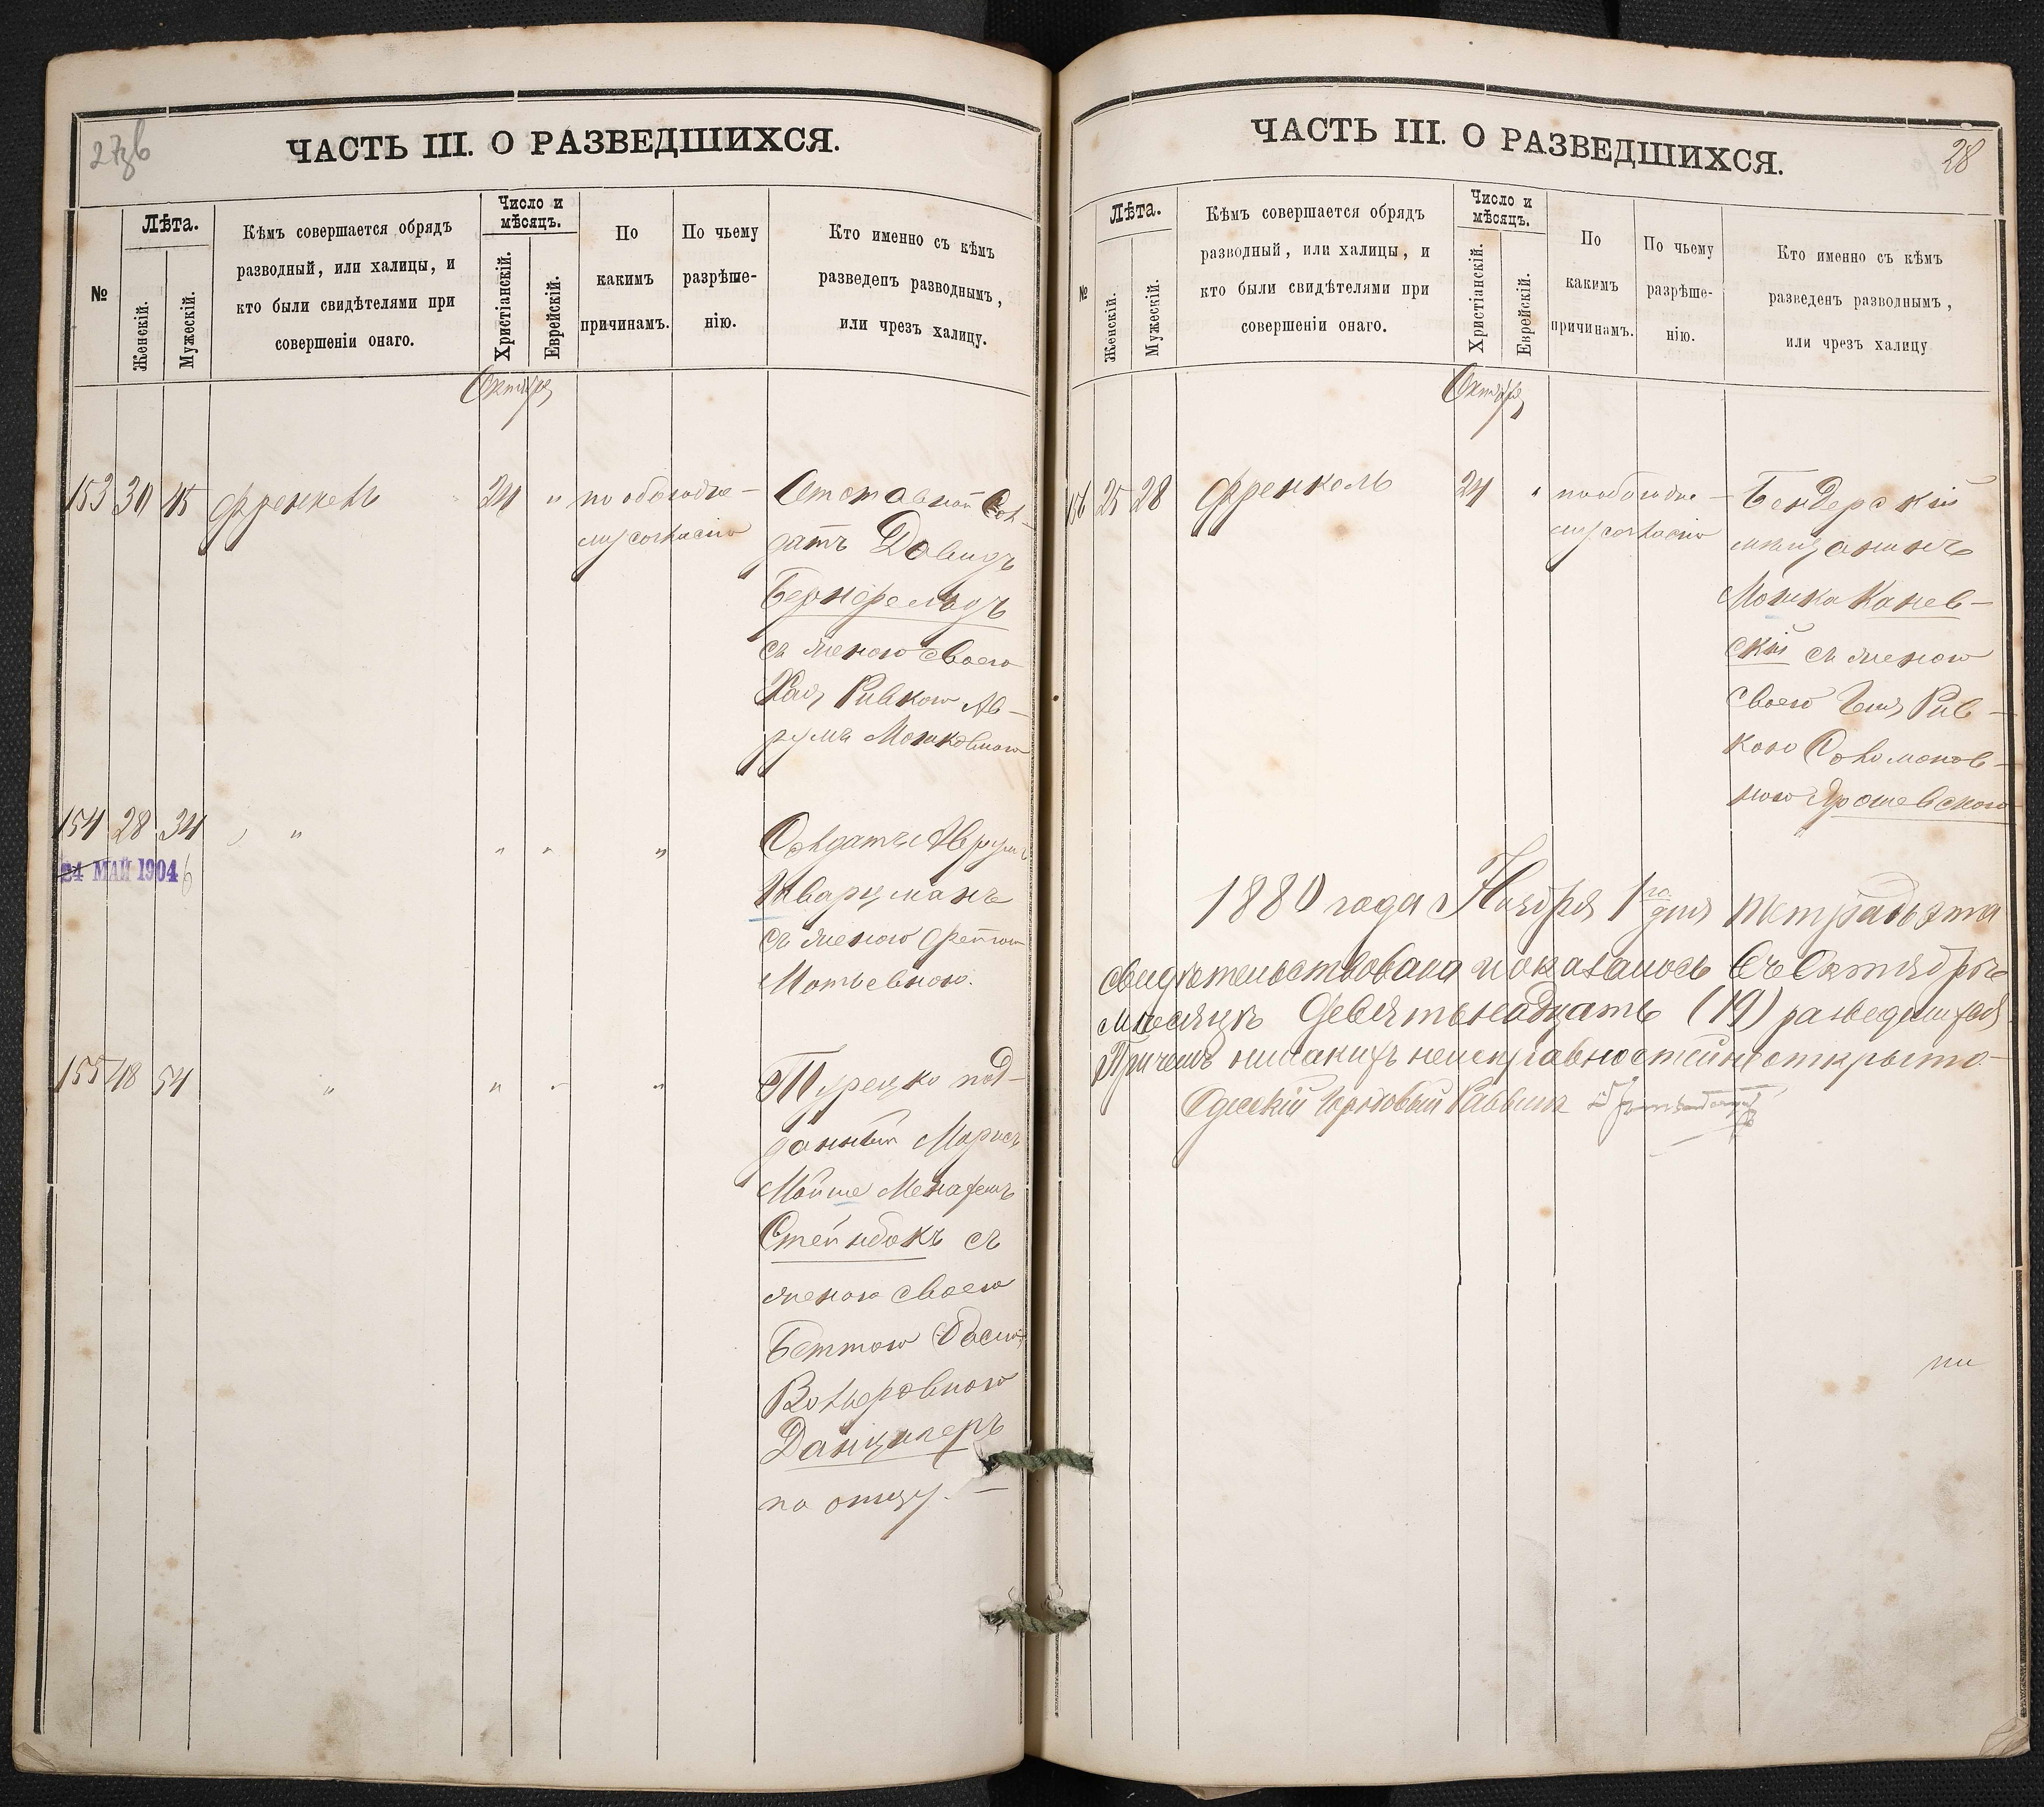 27зв
ЧАСТЬ III. О РАЗВЕДШИХСЯ.
№
Лѣта.
Женскій.
Мужескій.
Кѣмъ совершается обрядъ
разводный, или халицы, и
кто были свидѣтелями при
совершеніи онаго.
Число и
мѣсяцъ.
Христіанскій.
Еврейскій.
По
какимъ
причинамъ.
По чьему
разрѣше-
нію.
Кто именно съ кѣмъ
разведенъ разводнымъ,
или чрезъ халицу.
Октября
153 30 45 Френкель 24 " по обоюдно-
му согласію
Отставной Сол-
датъ Давидъ
Бернфельдъ
съ женою своею
Хая Ривкою Ав-
румъ Мошковною
154 28 34 " " " "
24 МАЙ 1904
Солдатъ Аврумъ
Шварцманъ
съ женою
Мотьевною.
155 48 54 " " " "
Турецко под-
данный Марисъ
Мойше
Стейнбокъ съ
женою своею
Беттою
Вольеровною
Данцигеръ
по отцу. —
ЧАСТЬ III. О РАЗВЕДШИХСЯ.
28
№
Лѣта.
Женскій.
Мужескій.
Кѣмъ совершается обрядъ
разводный, или халицы, и
кто были свидѣтелями при
совершеніи онаго.
Число и
мѣсяцъ.
Христіанскій.
Еврейскій.
По
какимъ
причинамъ.
По чьему
разрѣше-
нію.
Кто именно съ кѣмъ
разведенъ разводнымъ,
или чрезъ халицу
Октября
156 25 28 Френкель 24 " по обоюдно-
му согласію
Бендерскій
мѣщанинъ
Мошка Канев-
скій съ женою
своею Рив-
кою Соломонов-
ною Ярошевскою
1880 года Ноября 1го дня тетрадь эта
свидѣтельствована и оказалось въ Октябрѣ
мѣсяцѣ девятьнадцать (19) разведшихся
Причемъ никакихъ неисправностей не открыто.
Одесскій Городовый Раввинъ